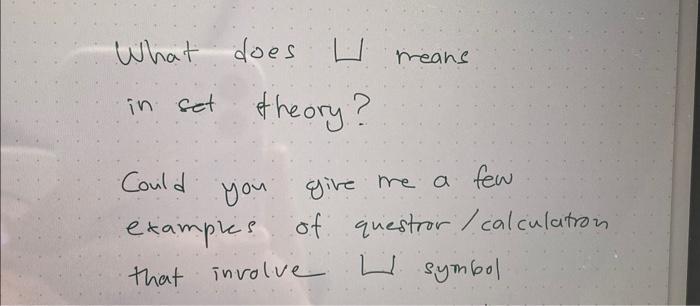 What does ⊔ means
in set theory?
Could you give me a few
examples of question/calculation
that involve ⊔ symbol